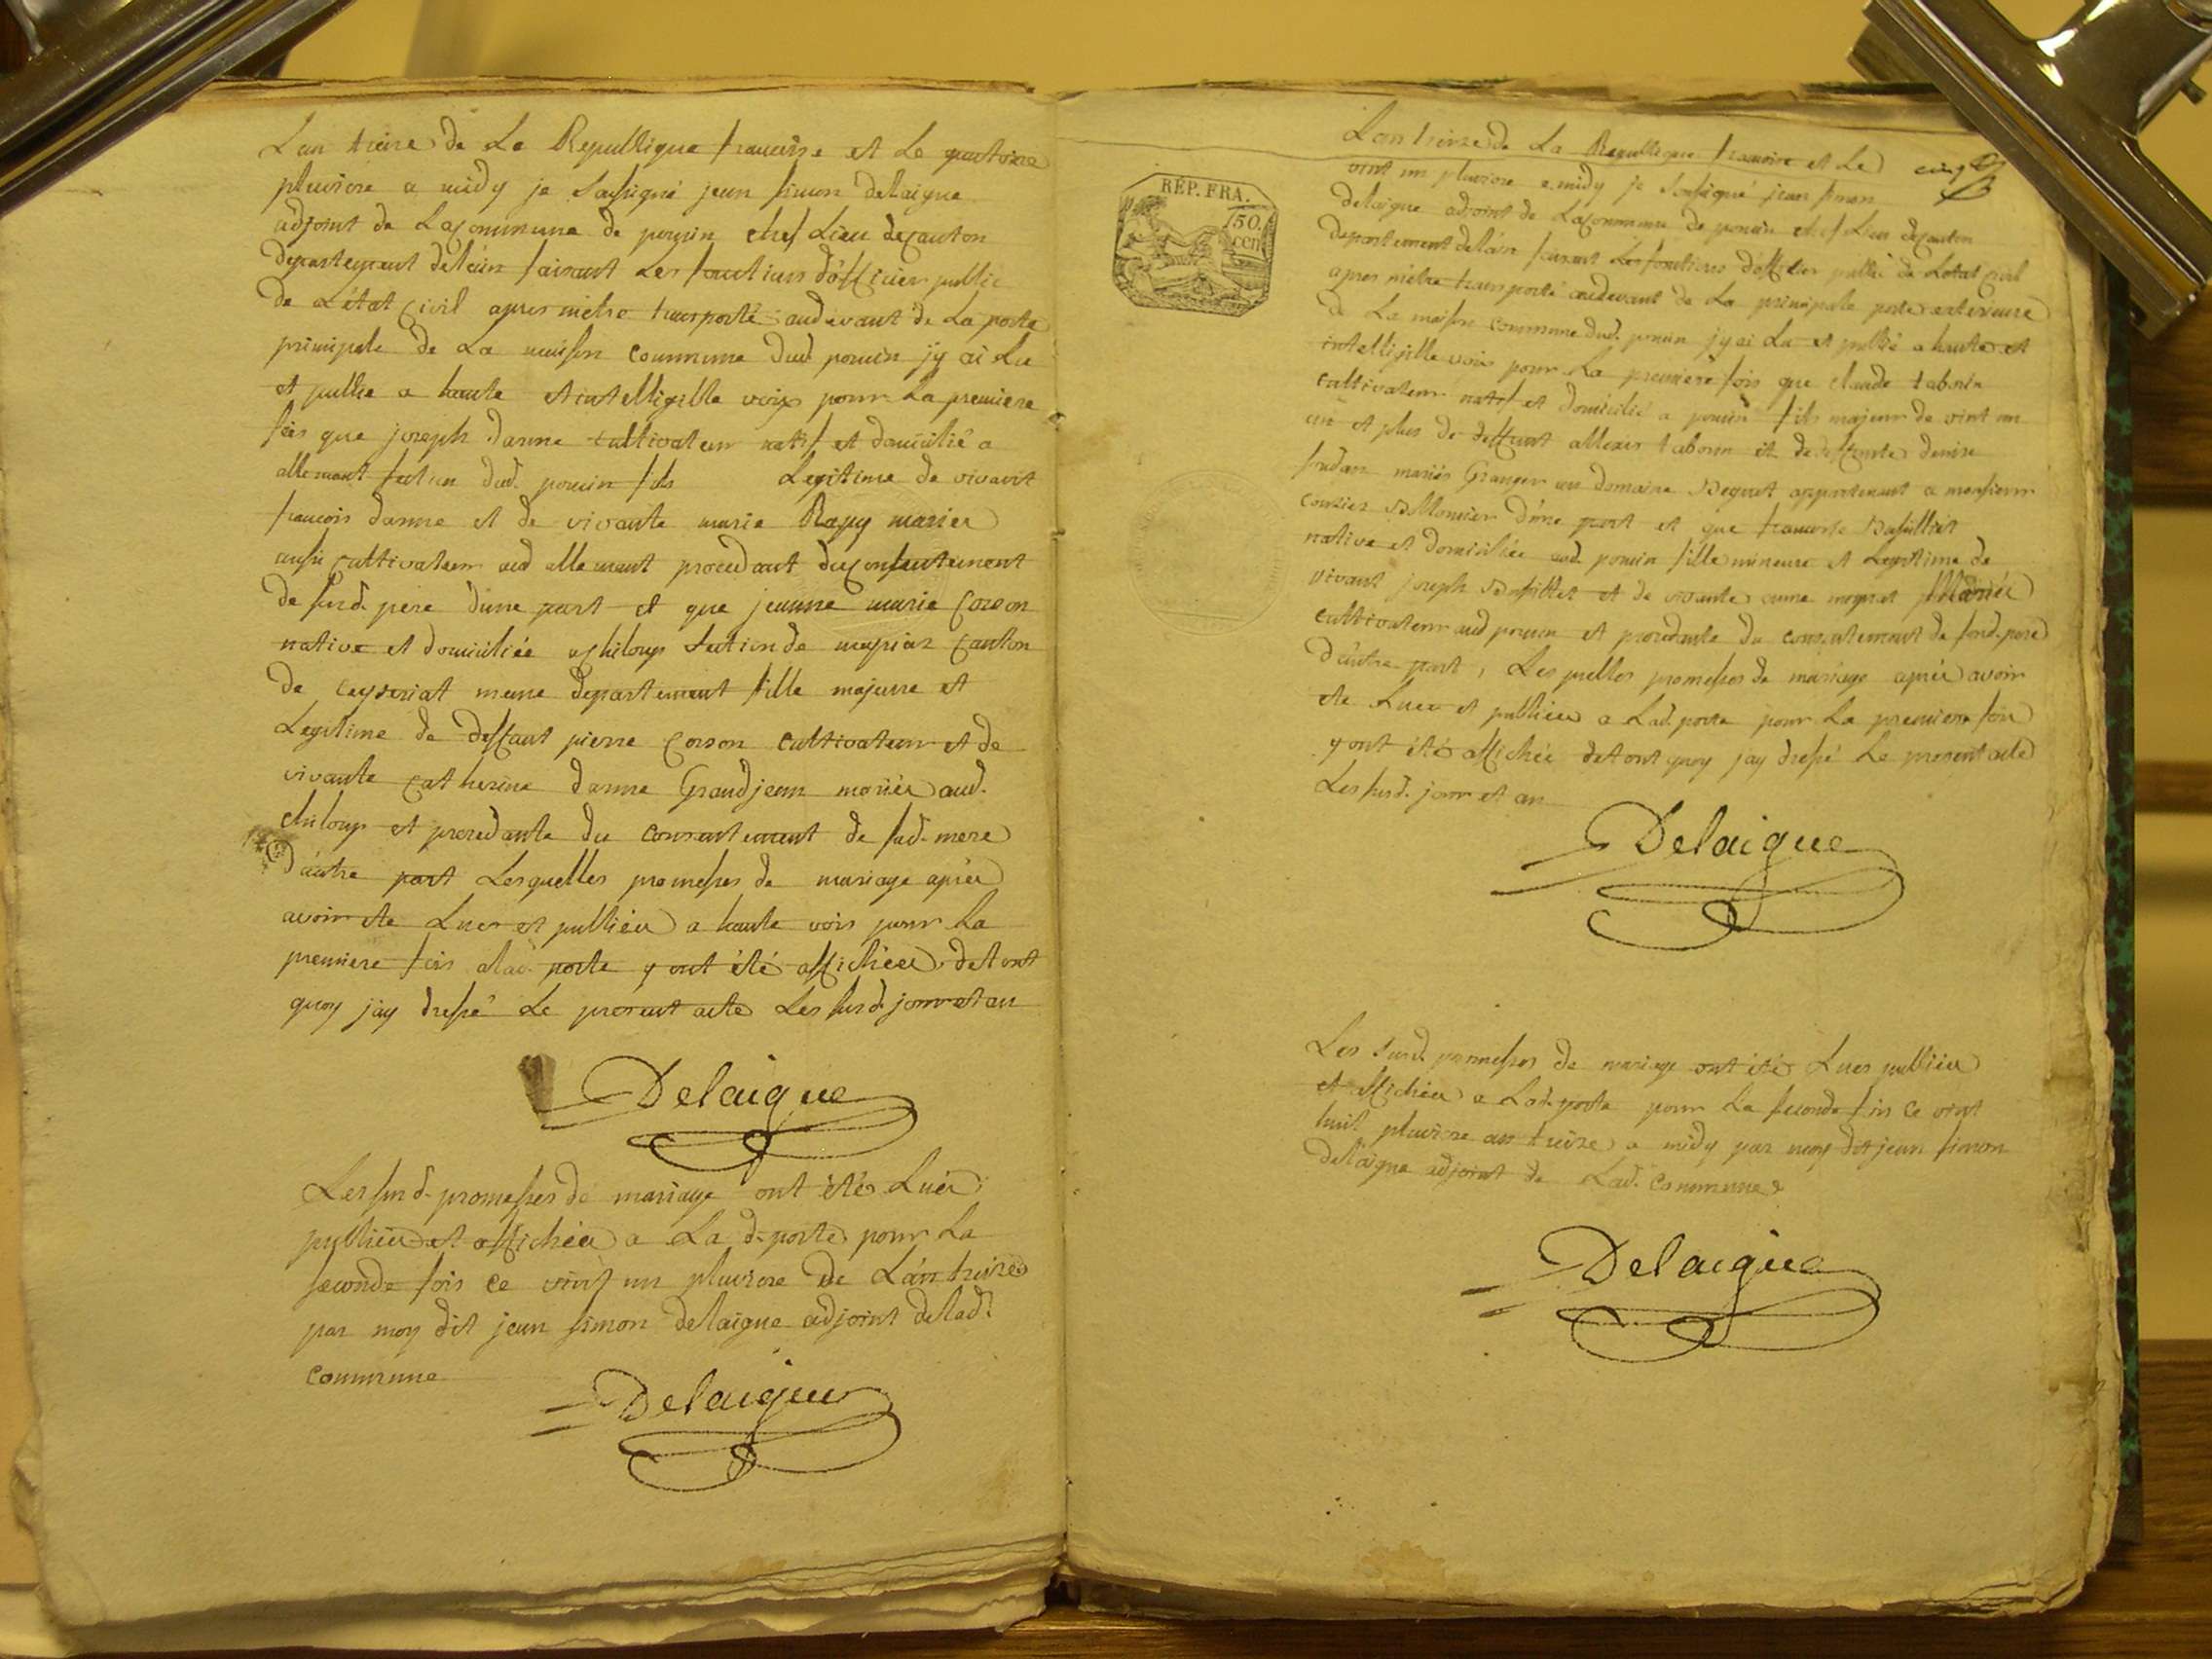 Lan treize de La Republique francoise et Le quatorze
pluviose a midy je Soussigné jean simon delaigue
adjoint de Lacommune de poncin chef Lieu decanton
departement delain faisant Les fonctions d'officier public
de L'état civil apres m'etre transporté audevant de La porte
principale de La maison commune dud. poncin jy ai Lu
et publie a haute et intelligible voix pour La premiere
fois que joseph danne cultivateur natif et domicilié a
allement section dud. poncin fils Legitime de vivant
francois danne et de vivante marie Rapy mariés
aussi cultivateur aud allement procedant duconsentement
de sond. pere dune part et que jeanne marie corson
native et domiciliée a chiloup section de canton
de ceyseriat meme departement fille majeure et
Legitime de deffunt pierre corson cultivateur et de
vivante catherine danne Grandjean mariés aud.
chiloup et procedante du consentement de sad. mere
d'autre part Lesquelles promesses de mariage apriés
avoir ete Lues et publiées a haute voix pour La
premiere fois alad. porte y ont été affichées detout
quoy jay dressé Le present acte Les susd. jour et an
Delaigue
Les susd. promesses de mariage ont étés Lués
publiées et affichées a La d. porte pour La
seconde fois ce vint un pluviose de Lan treize
par moy dit jean simon delaigue adjoint delad.
commune
Delaigue
cinq
REP. FRA.
50.
cen
Lan treize de La Republique francoise et Le
vint un pluviose a midy je Soussigné jean simon
delaigue adjoint de Lacommune de poncin chef Lieu decanton
departement delain faisant Les fonctions d'officier public de Letat civil
apres m'etre transporté audevant de La principale porte exterieure
de La maison commune dud. poncin jy ai Lu et publié a haute et
intelligible voix pour La premiere fois que claude tabouin
cultivateur natif et domicilié a poncin fils majeur de vint un
an et plus de deffunt allexis tabouin et de deffunte denise
mariés Granger au domaine appartenant a monsieur
d'une part et que francoise
native et domiciliée aud. poncin fille mineure et Legitime de
vivant joseph et de vivante anne mariés
cultivateur aud poncin et procedante du consentement de sond. pere
d'autre part, Lesquelles promesses de mariage apriés avoir
ete Lues et publiées a Lad. porte pour La premiere fois
y ont étés affichée detout quoy jay dressé Le present acte
Les susd. jour et an
Delaigue
Les susd. promesses de mariage ont étés Lues publiées
et affichées a Lad. porte pour La seconde fois ce vint
huit pluviose an treize a midy par moy dit jean simon
delaigue adjoint de Lad. commune
Delaigue